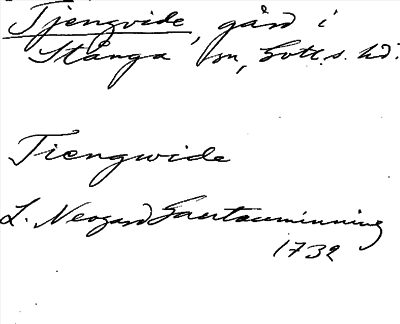 Tjengvide, gård i
Stånga sn, Gotl.s. hd.
Tiengwide
L. Neogard Gautauminning
1732